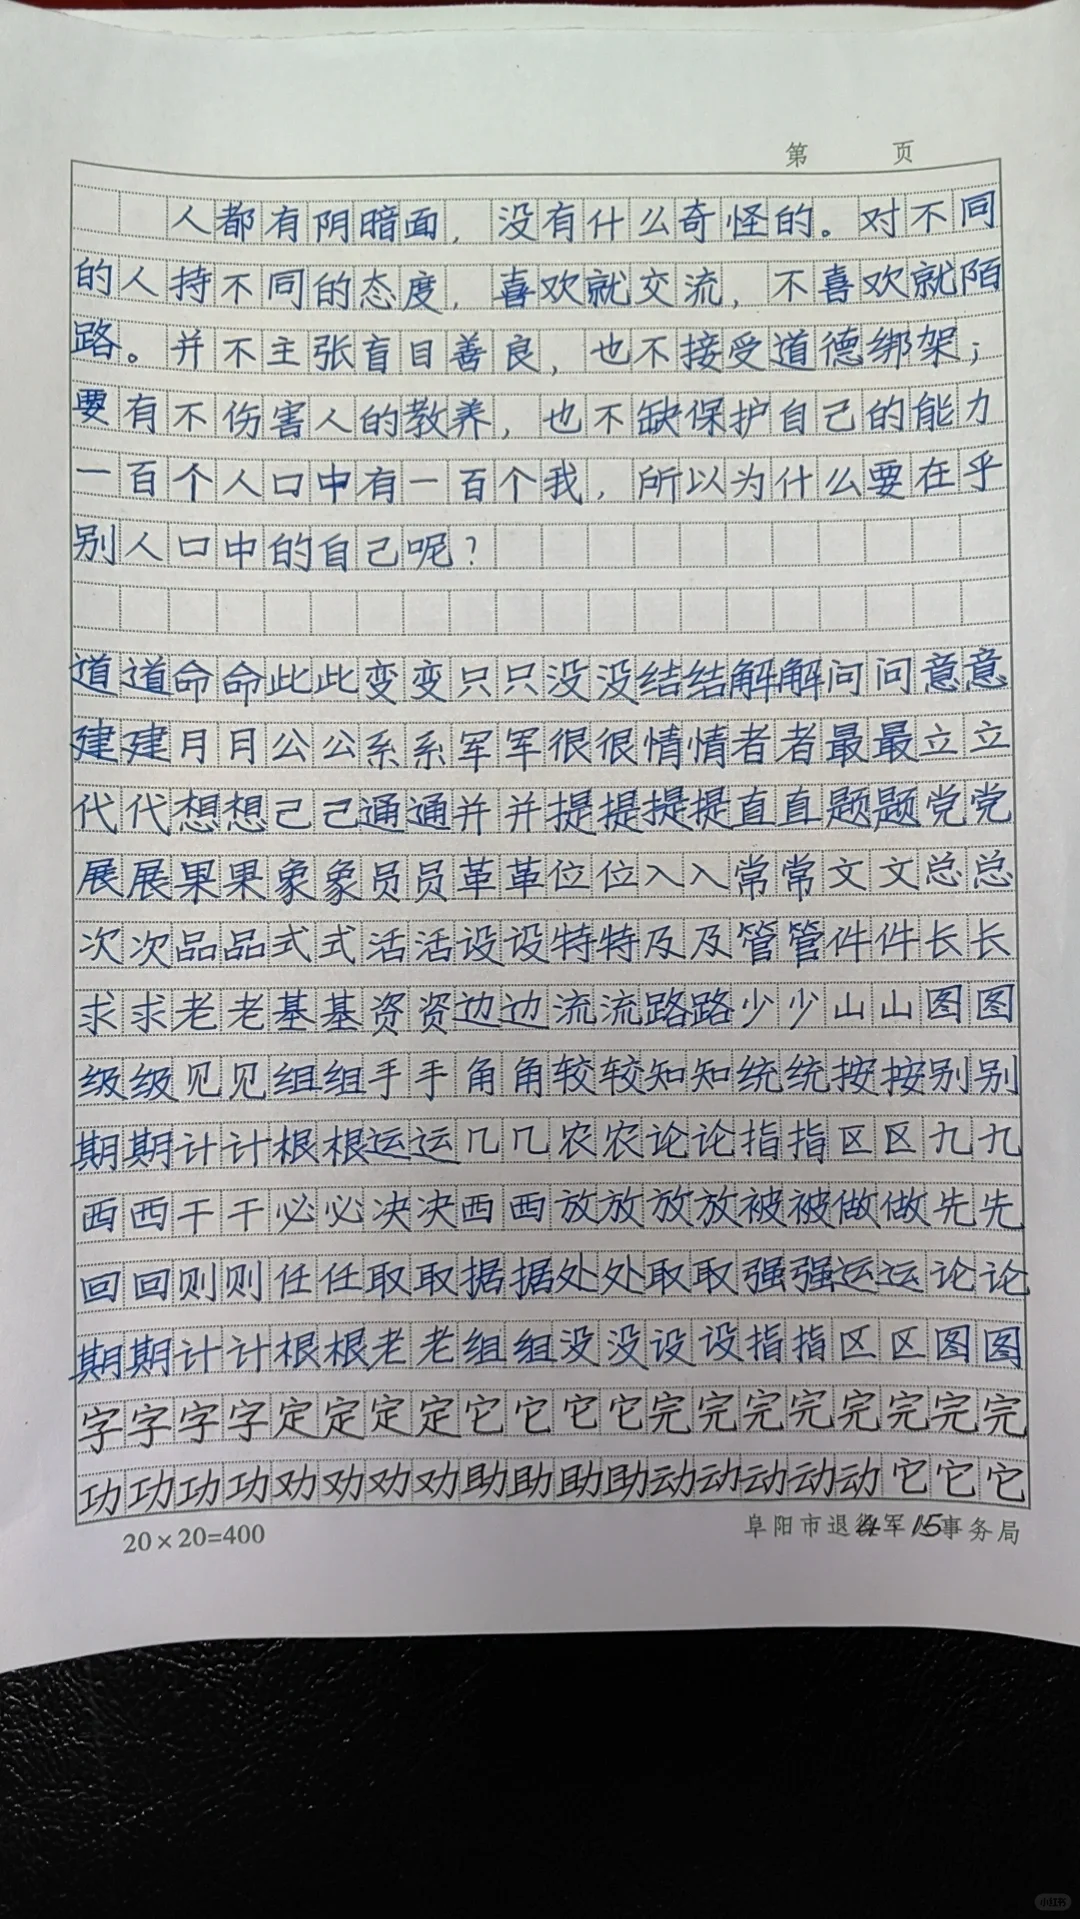 第 页
人都有阴暗面，没有什么奇怪的。对不同
的人持不同的态度，喜欢就交流，不喜欢就陌
路。并不主张盲目善良，也不接受道德绑架；
要有不伤害人的教养，也不缺保护自己的能力
一百个人口中有一百个我，所以为什么要在乎
别人口中的自己呢？
道道命命此此变变只只没没结结解解问问意意
建建月月公公系系军军很很情情者者最最立立
代代想想己己通通并并提提提提直直题题党党
展展果果象象员员革革位位入入常常文文总总
次次品品式式活活设设特特及及管管件件长长
求求老老基基资资边边流流路路少少山山图图
级级见见组组手手角角较较知知统统按按别别
期期计计根根运运几几农农论论指指区区九九
西西干干必必决决西西放放放放被被做做先先
回回则则任任取取据据处处取取强强运运论论
期期计计根根老老组组没没设设指指区区图图
字字字字定定定定它它它它完完完完完完完完
功功功功劝劝劝劝助助助助动动动动动它它它
20×20=400
阜阳市退役军 15事务局
小红书